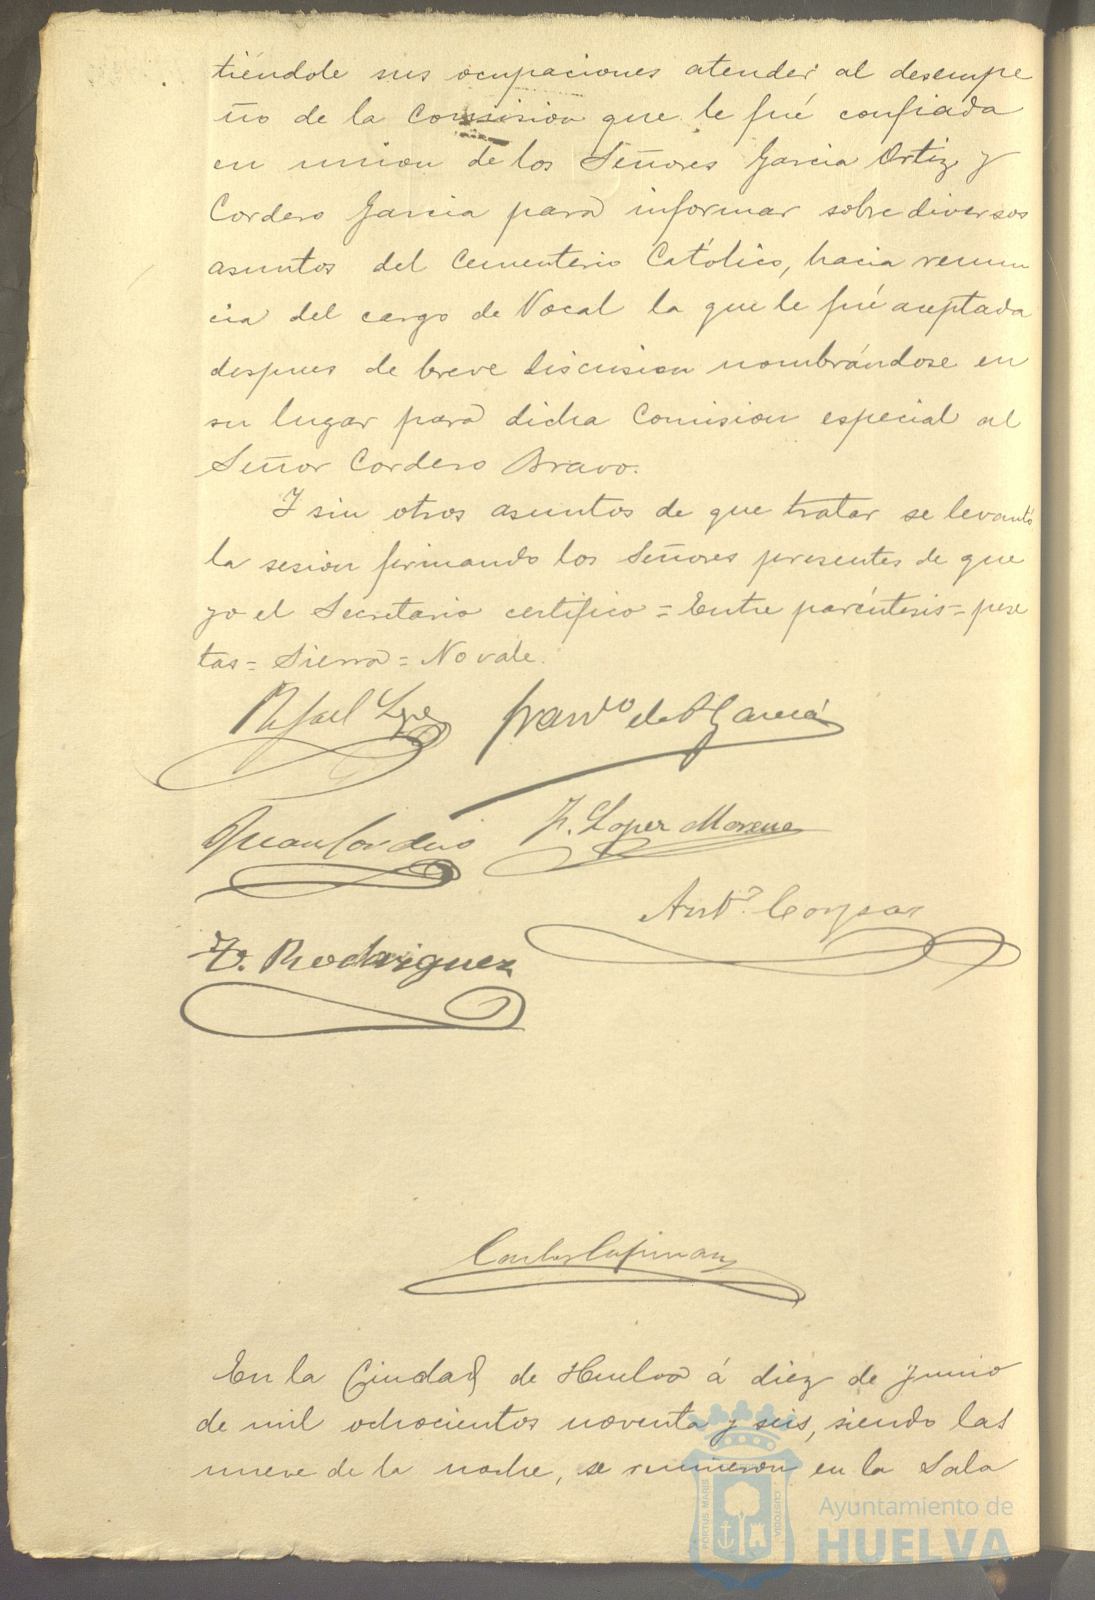 tiéndole sus ocupaciones atender al desempe
ño de la Comision que le fué confiada
en union de los Señores Garcia Ortiz y
Cordero Garcia para informar sobre diversos
asuntos del Cementerio Católico, hacia renun
cia del cargo de Vocal la que le fué aceptada
despues de breve discusion nombrándose en
su lugar para dicha Comision especial al
Señor Cordero Bravo.
Y sin otros asuntos de que tratar se levantó
la sesion firmando los Señores presentes de que
yo el Secretario certifico = Entre paréntesis = pese
tas = Sierra = No vale.
Rafael Franco de Garcia
Juan Cordero F. Lopez Moreno
Anto
F. Rodriguez
En la Ciudad de Huelva á diez de Junio
de mil ochocientos noventa y seis, siendo las
nueve de la noche, se reunieron en la Sala
PORTUS MARIS CUSTODIA
Ayuntamiento de
HUELVA